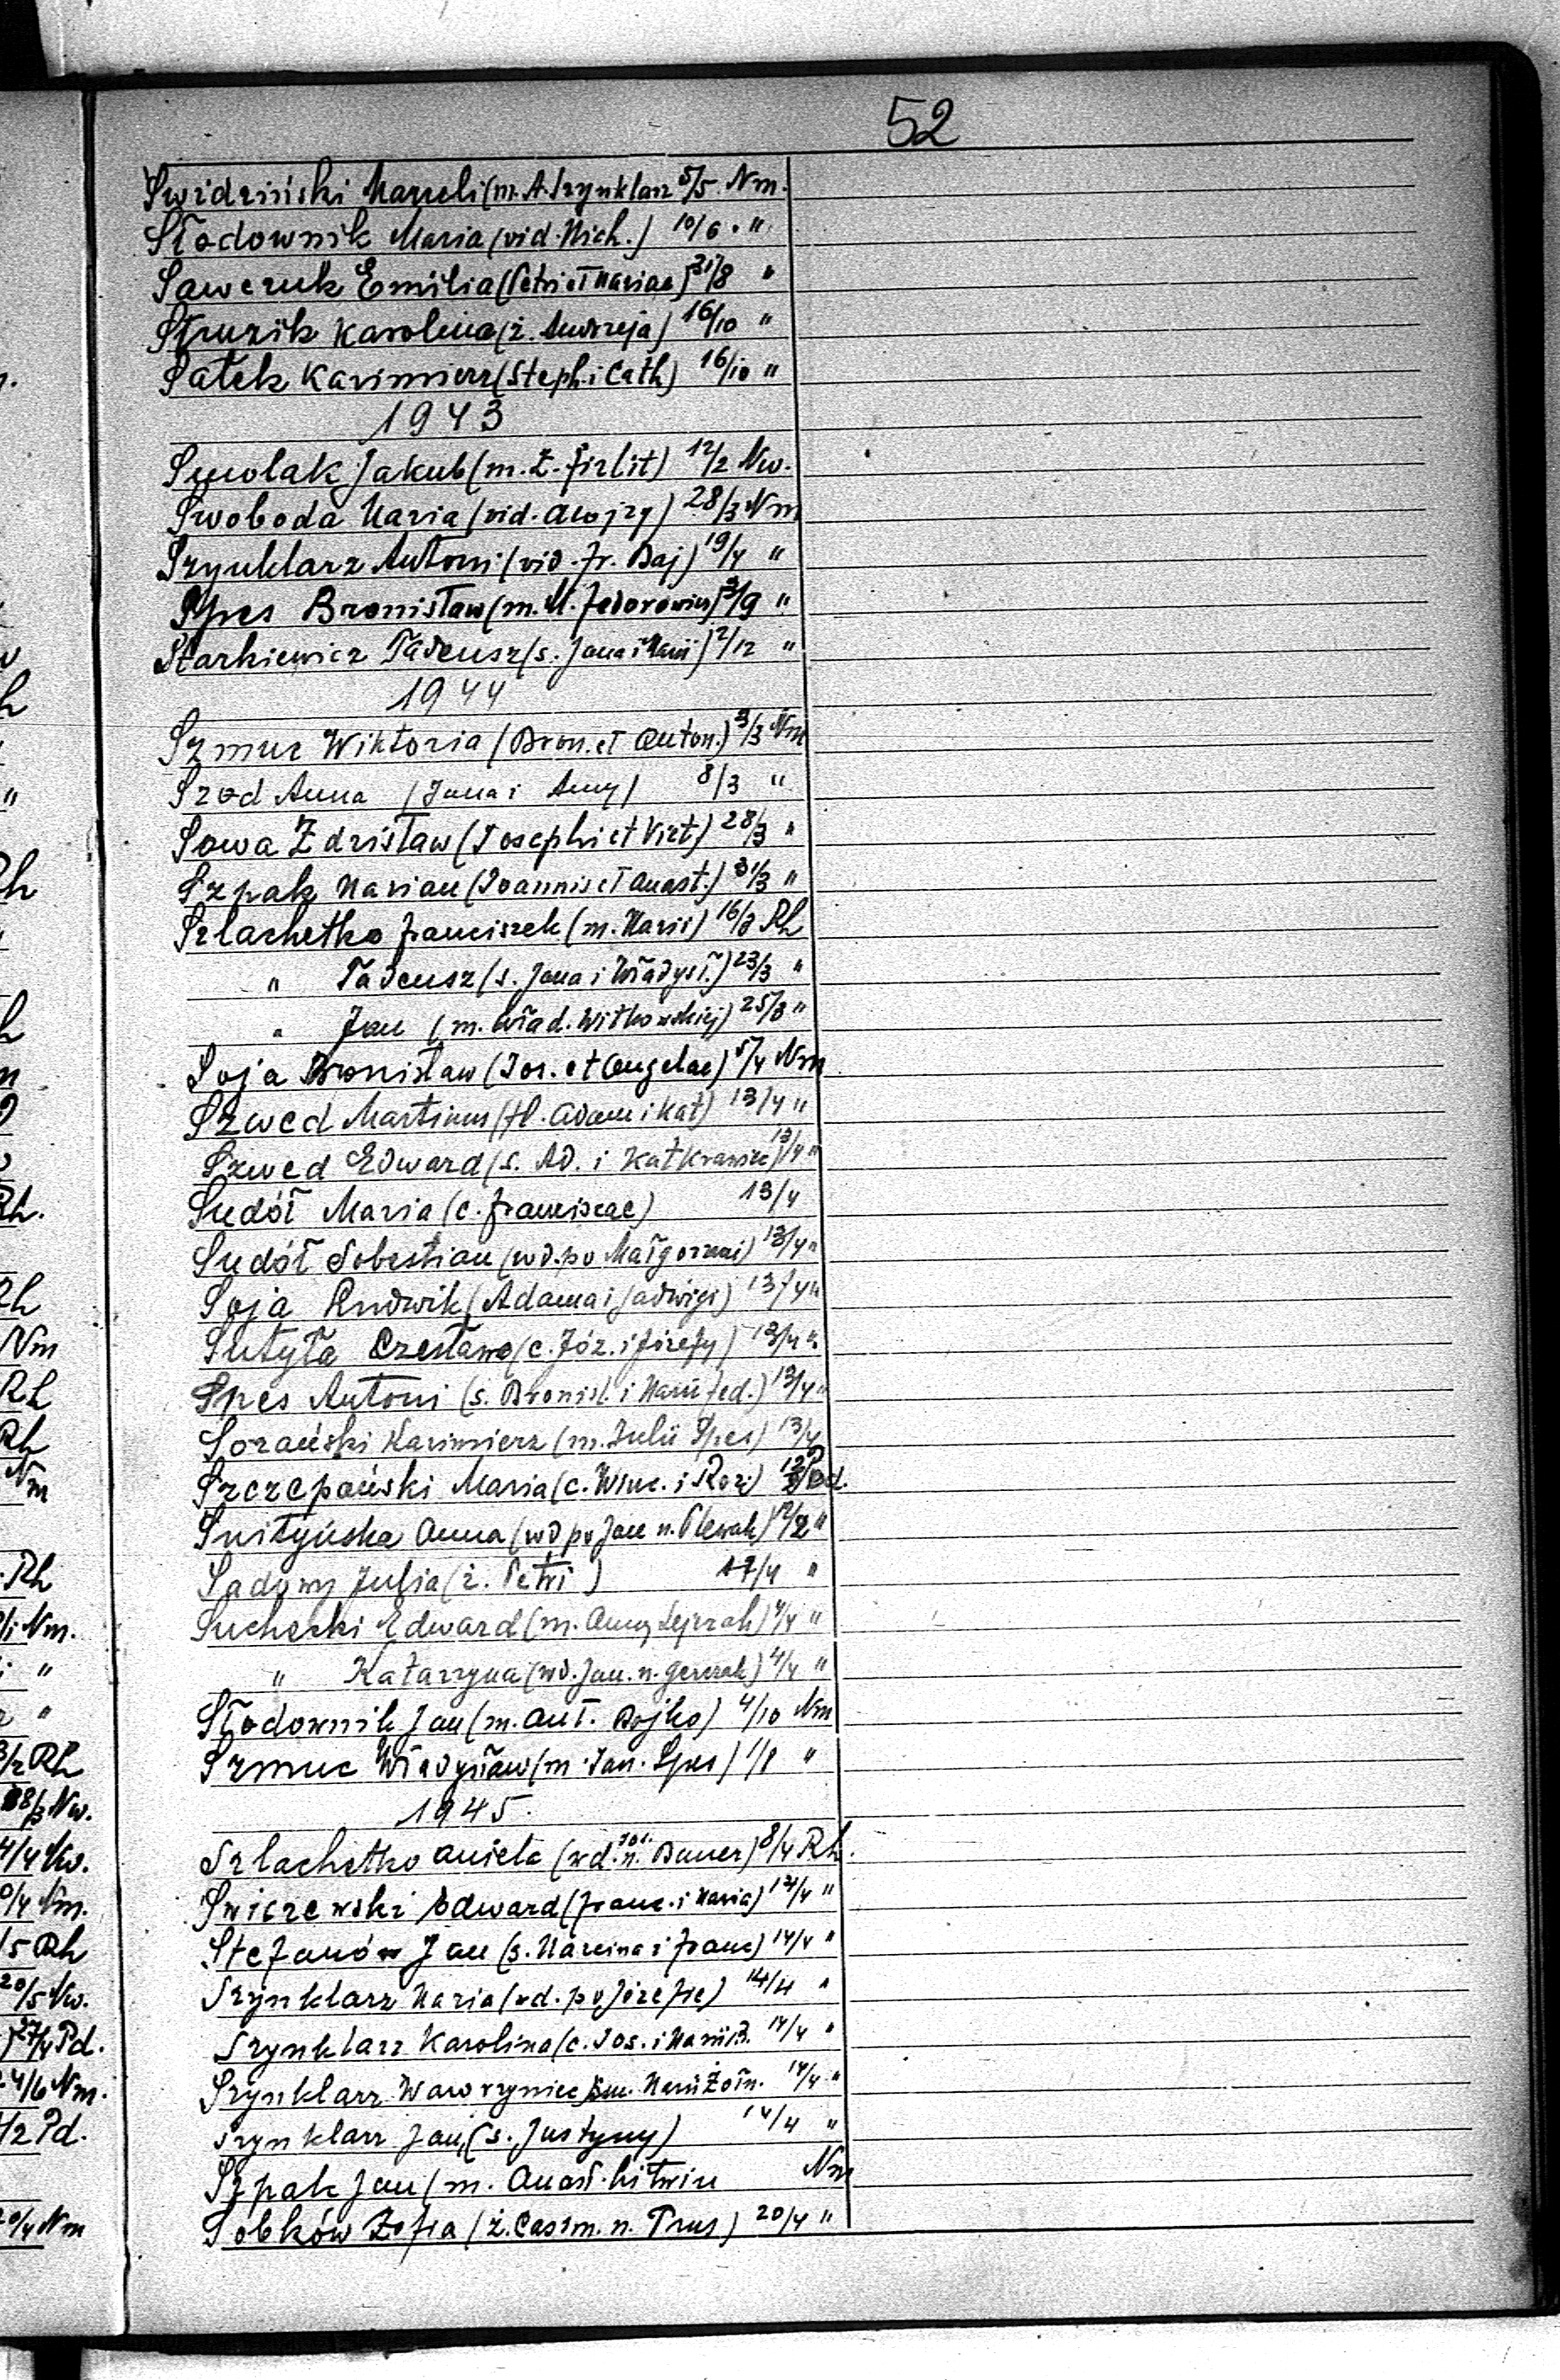 52
Swidziński Marceli (m. A. Szynklarz 5/5 Nm.
Słodownik Maria (vid. Mich.) 10/6 "
Sawczuk Emilia (Petri et Mariae) 31/8 "
Struzik Karolina (ż. Andrzeja) 16/10 "
Sałek Kazimierz (Steph. i Cath) 16/10 "
1943
Smolak Jakub (m. Z. Firlit) 12/2 Nw.
Swoboda Maria (vid. Alojzy) 28/3 Nm
Szynklarz Antoni (vid. Fr. Baj) 19/4 "
Spes Bronisław (m. M. Fedorowicz) 3/9 "
Starkiewicz Tadeusz (s. Jana i Marii) 2/12 "
1944
Szmuc Wiktoria (Bron. et Anton.) 3/3 Nm
Szod Anna (Jana i Anny) 8/3 "
Sowa Zdzisław (Josephi et Vict) 28/3 "
Szpak Marian (Joannis et Anast.) 31/3 "
Szlachetko Franciszek (m. Marii) 16/3 Rh
" Tadeusz (s. Jana i Władysł.) 23/3 "
" Jan (m. Wład. Witkowskiej) 25/3 "
Soja Bronisław (Jos. et Angelae) 5/4 Nm
Szwed Martinus (fil. Adam i Kat) 13/4 "
Szwed Edward (s. Ad. i Kat Krawiec) 13/4 "
Sudół Maria (c. Franciscae) 13/4
Sudół Sobestian (wd. po Małgorzacie) 13/4 "
Soja Ludwik (Adama i Jadwigi) 13/4 "
Sutyła Czesława (c. Józ. i Józefy) 13/4 "
Spes Antoni (s. Bronisł. i Marii Fed.) 13/4 "
Sozański Kazimierz (m. Julii Spes) 13/4
Szczepański Maria (c. Winc. i Rozi) Pd.
Snityńska Anna (wd po Jan n. Plewak) 12/2 "
Sadowy Julia (ż. Petri) 17/4 "
Suchecki Edward (m. Anny Lejczak) 4/4 "
" Katarzyna (wd. Jan. n. ) 4/4 "
Słodownik Jan (m. Ant. Bojko) 4/10 Nm
Szmuc Władysław (m. Jan. Spes) 1/8 "
1945.
Szlachetko Aniela (wd. Jos. n. Bauer) 8/4 Rh.
Swiczewski Edward (Franc. i Maria) 14/4 "
Stefanów Jan (s. Marcina i Franc) 14/4 "
Szynklarz Maria (wd. po Józefie) 14/4 "
Szynklarz Karolina (c. Jos. i Marii B. 14/4 "
Szynklarz Wawrzyniec m. Marii Żołn. 14/4 "
Szynklarz Jan, (s. Justyny) 14/4 "
Szpak Jan (m. Anast. Litwin Nm
Sobków Zofia (ż. Casim. n. Trus) 20/4 "